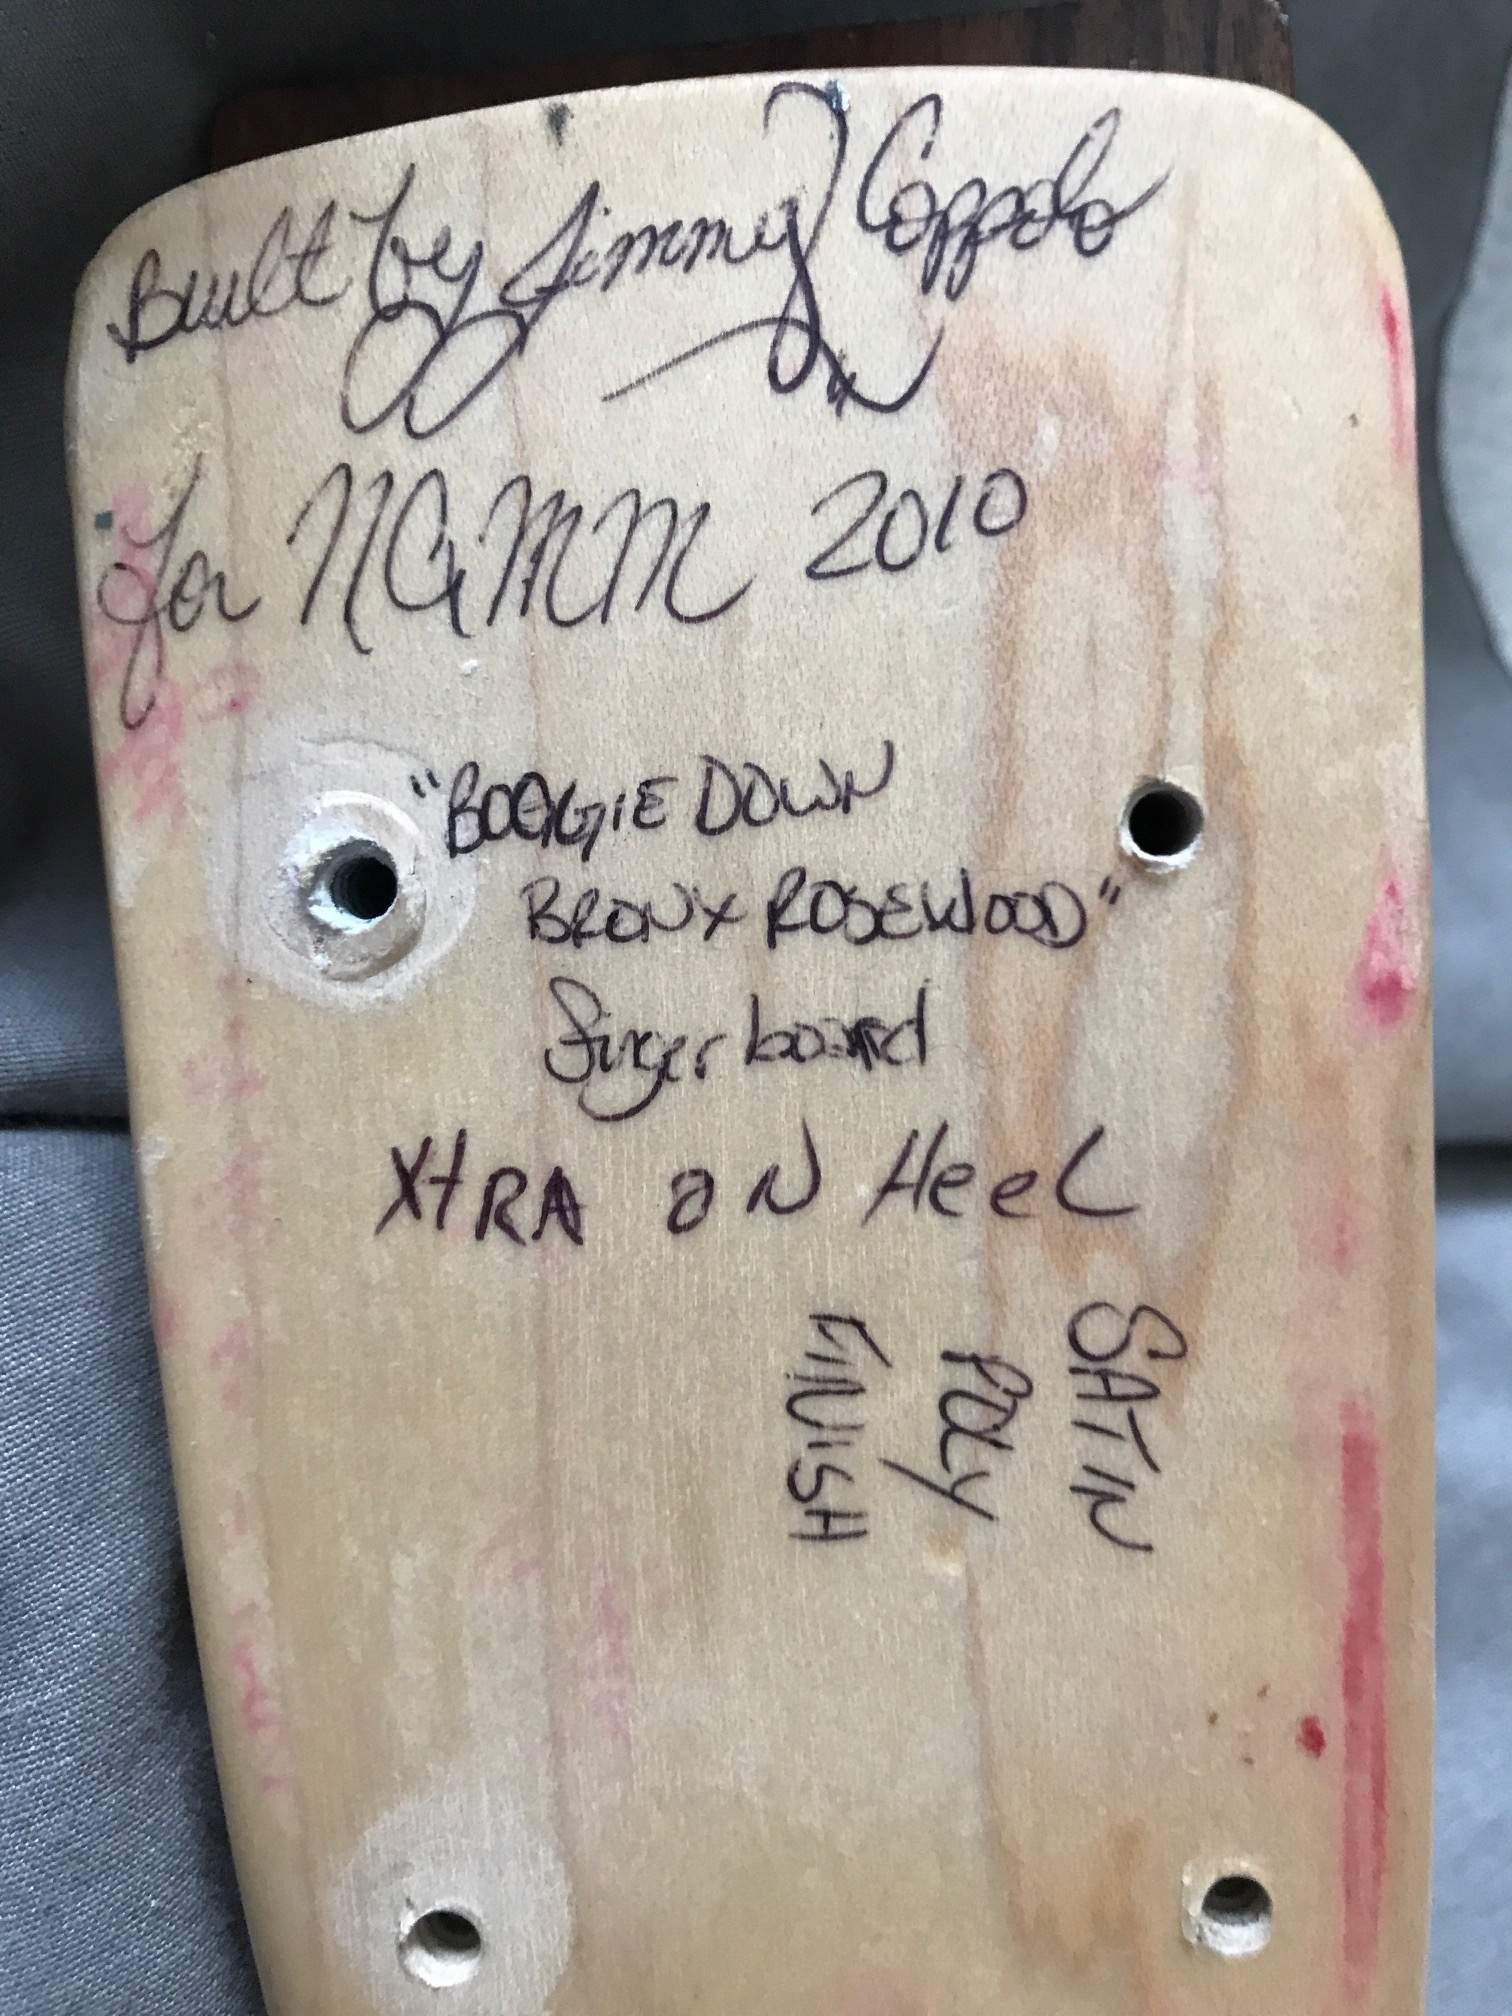 Built by Jimmy Coppolo
for NAMM 2010
"BOOGIE DOWN
BRONX ROSEWOOD"
fingerboard
XtRA ON HeeL
SATIN
POLY
FINISH